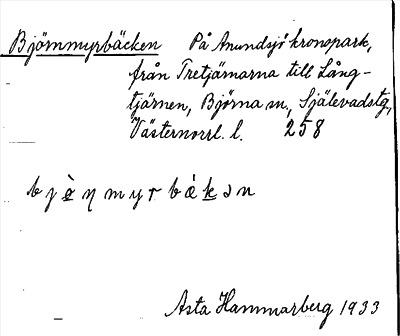 Björnmyrbäcken På Anundsjö kronopark,
från Tretjärnarna till Lång-
tjärnen, Björna sn, Själevadstg,
Västernorrl. l. 258
bjòņmyrbákən
Asta Hammarberg 1933